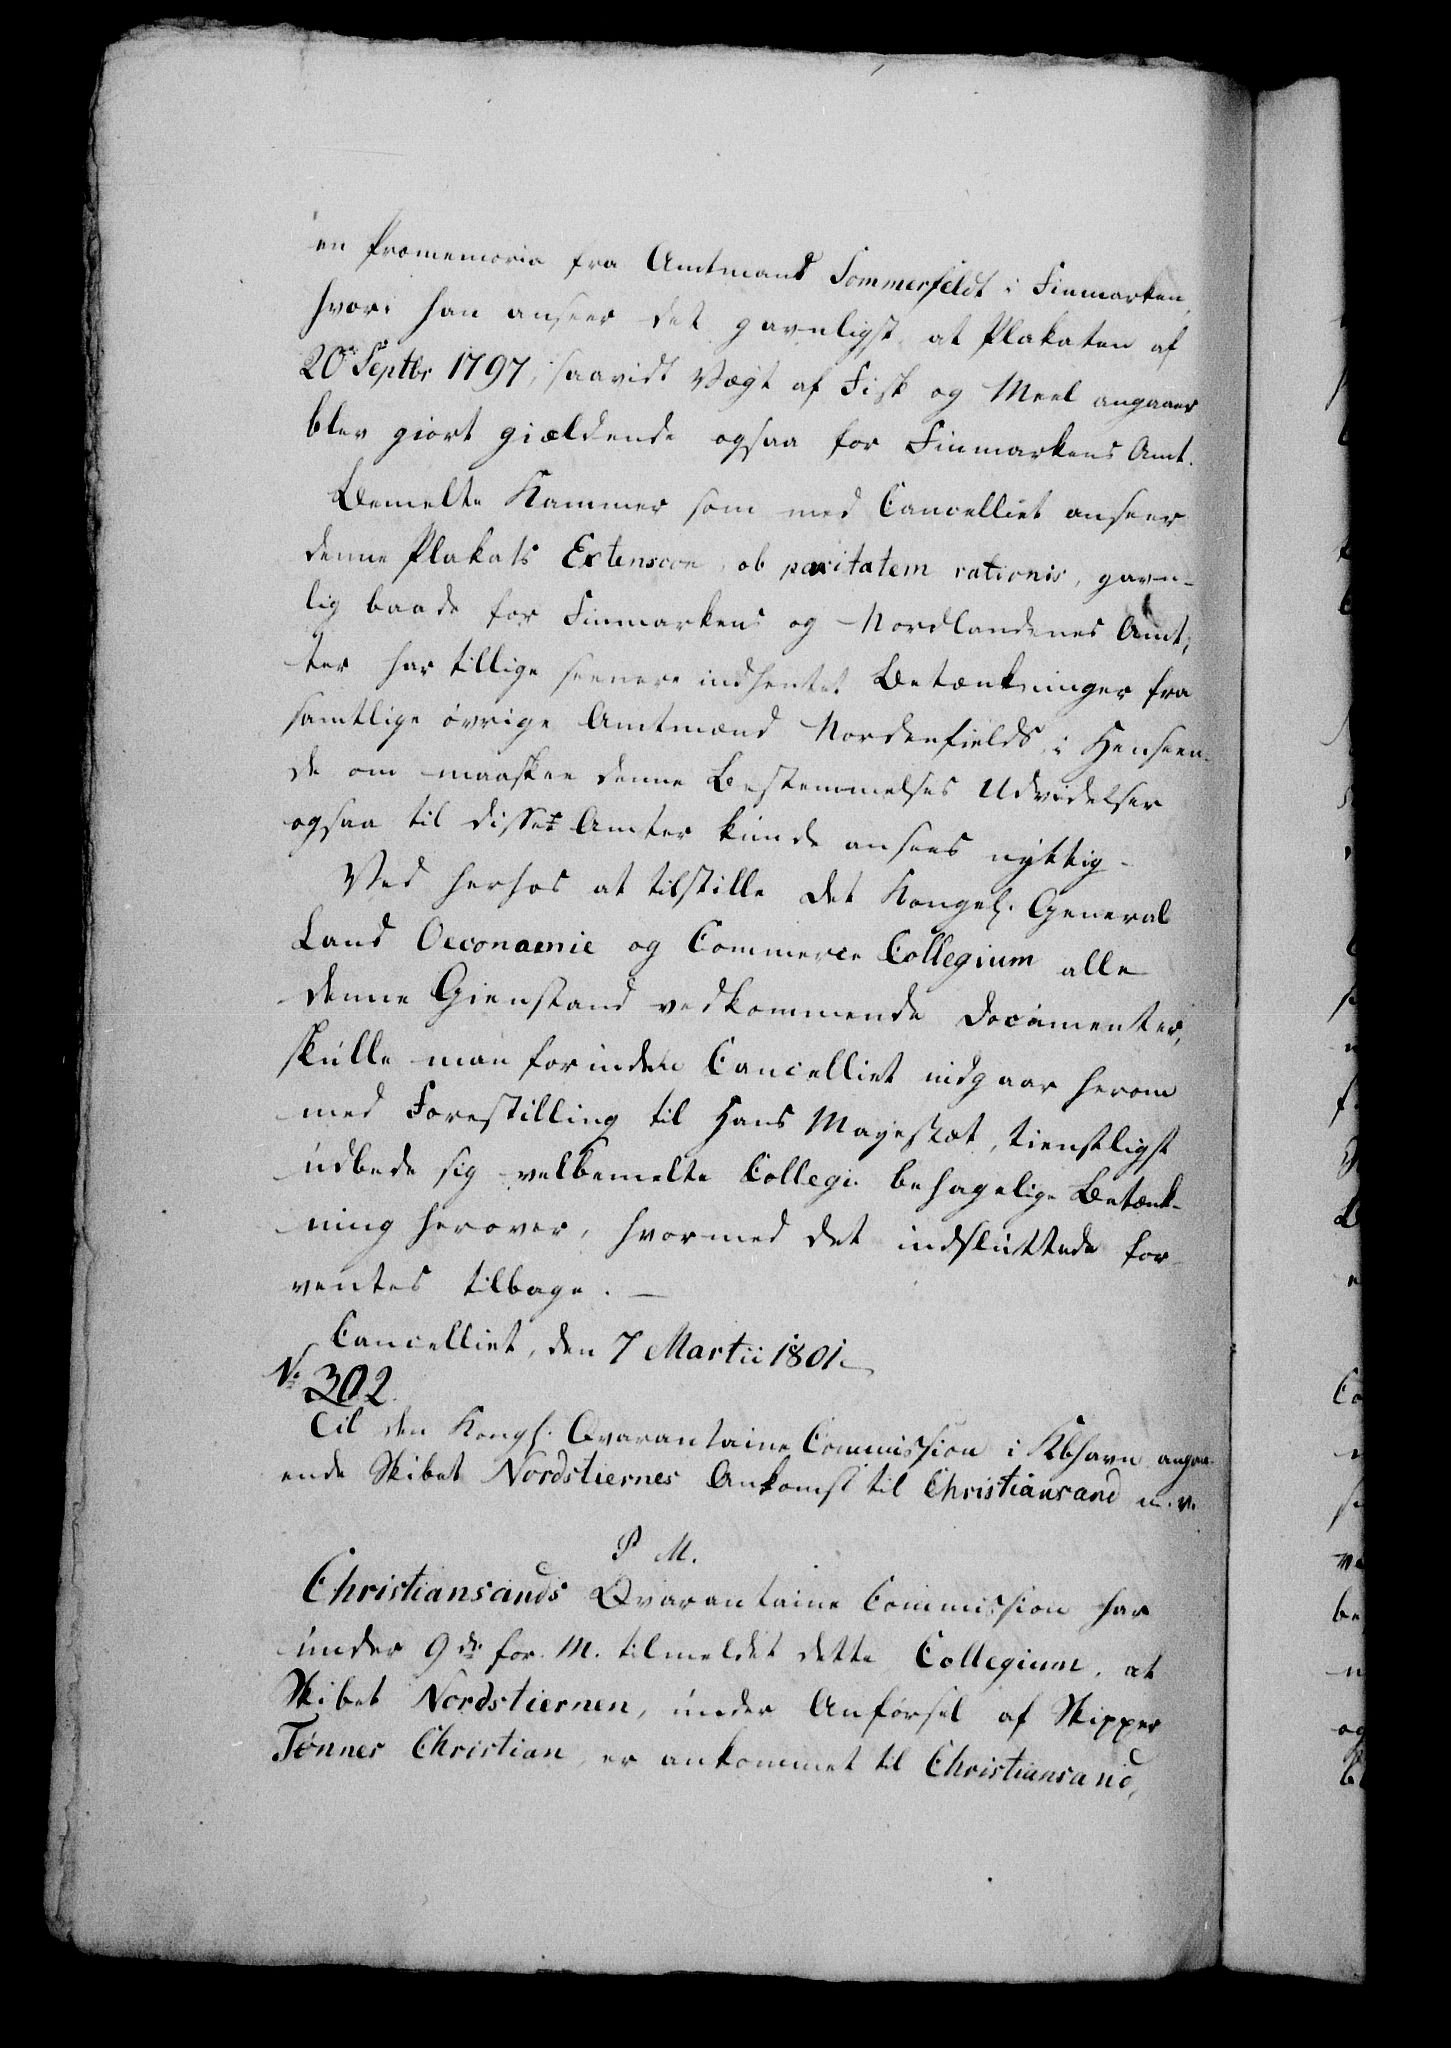 en Promemoria fra Amtmand Sommerfeldt i Finmarken,
hvori han anseer det gavnligst, at Plakaten af
20de Septbr 1797, saavidt Vægt af Fisk og Meel angaaer
blev giort gieldende ogsaa for Finmarkens Amt.
Bemelte Kammer som med Cancelliet anseer
denne Plakats Extension, ob paritatem rationis, gavn-
lig baade for Finmarkens og Nordlandenes Amt,
ter har tillige seenere indhentet Betænkninger fra
samtlige øvrige Amtmænd Nordenfields, i Henseen-
de om maaskee denne Bestemmelses Udvidelser
ogsaa til disse Amter kunde ansees nyttig.
Ved herhos at tilstille det Kongel. General
Land Oeconomie og Commerce Collegium alle
denne Gienstand vedkommende Documenter,
skulle man forinden Cancelliet indgaar herom
med Forestilling til Hans Mayestæt, tienstligst
udbede sig velbemelte Collegii behagelige Betænk-
ning herover, hvormed det indsluttede for-
ventes tilbage. —
Cancelliet, den 7 Martii 1801.
No 302.
Til den Kongl. Qvarantaine Commission i Kbhavn angaa-
ende Skibet Nordstiernes Ankomst til Christiansand m. v.
P. M.
Christiansands Qvarantaine Commission har
under 9de for. M. tilmeldet dette Collegium, at
Skibet Nordstiernen, under Anførsel af Skipper
Tønnes Christian, er ankommet til Christiansand,